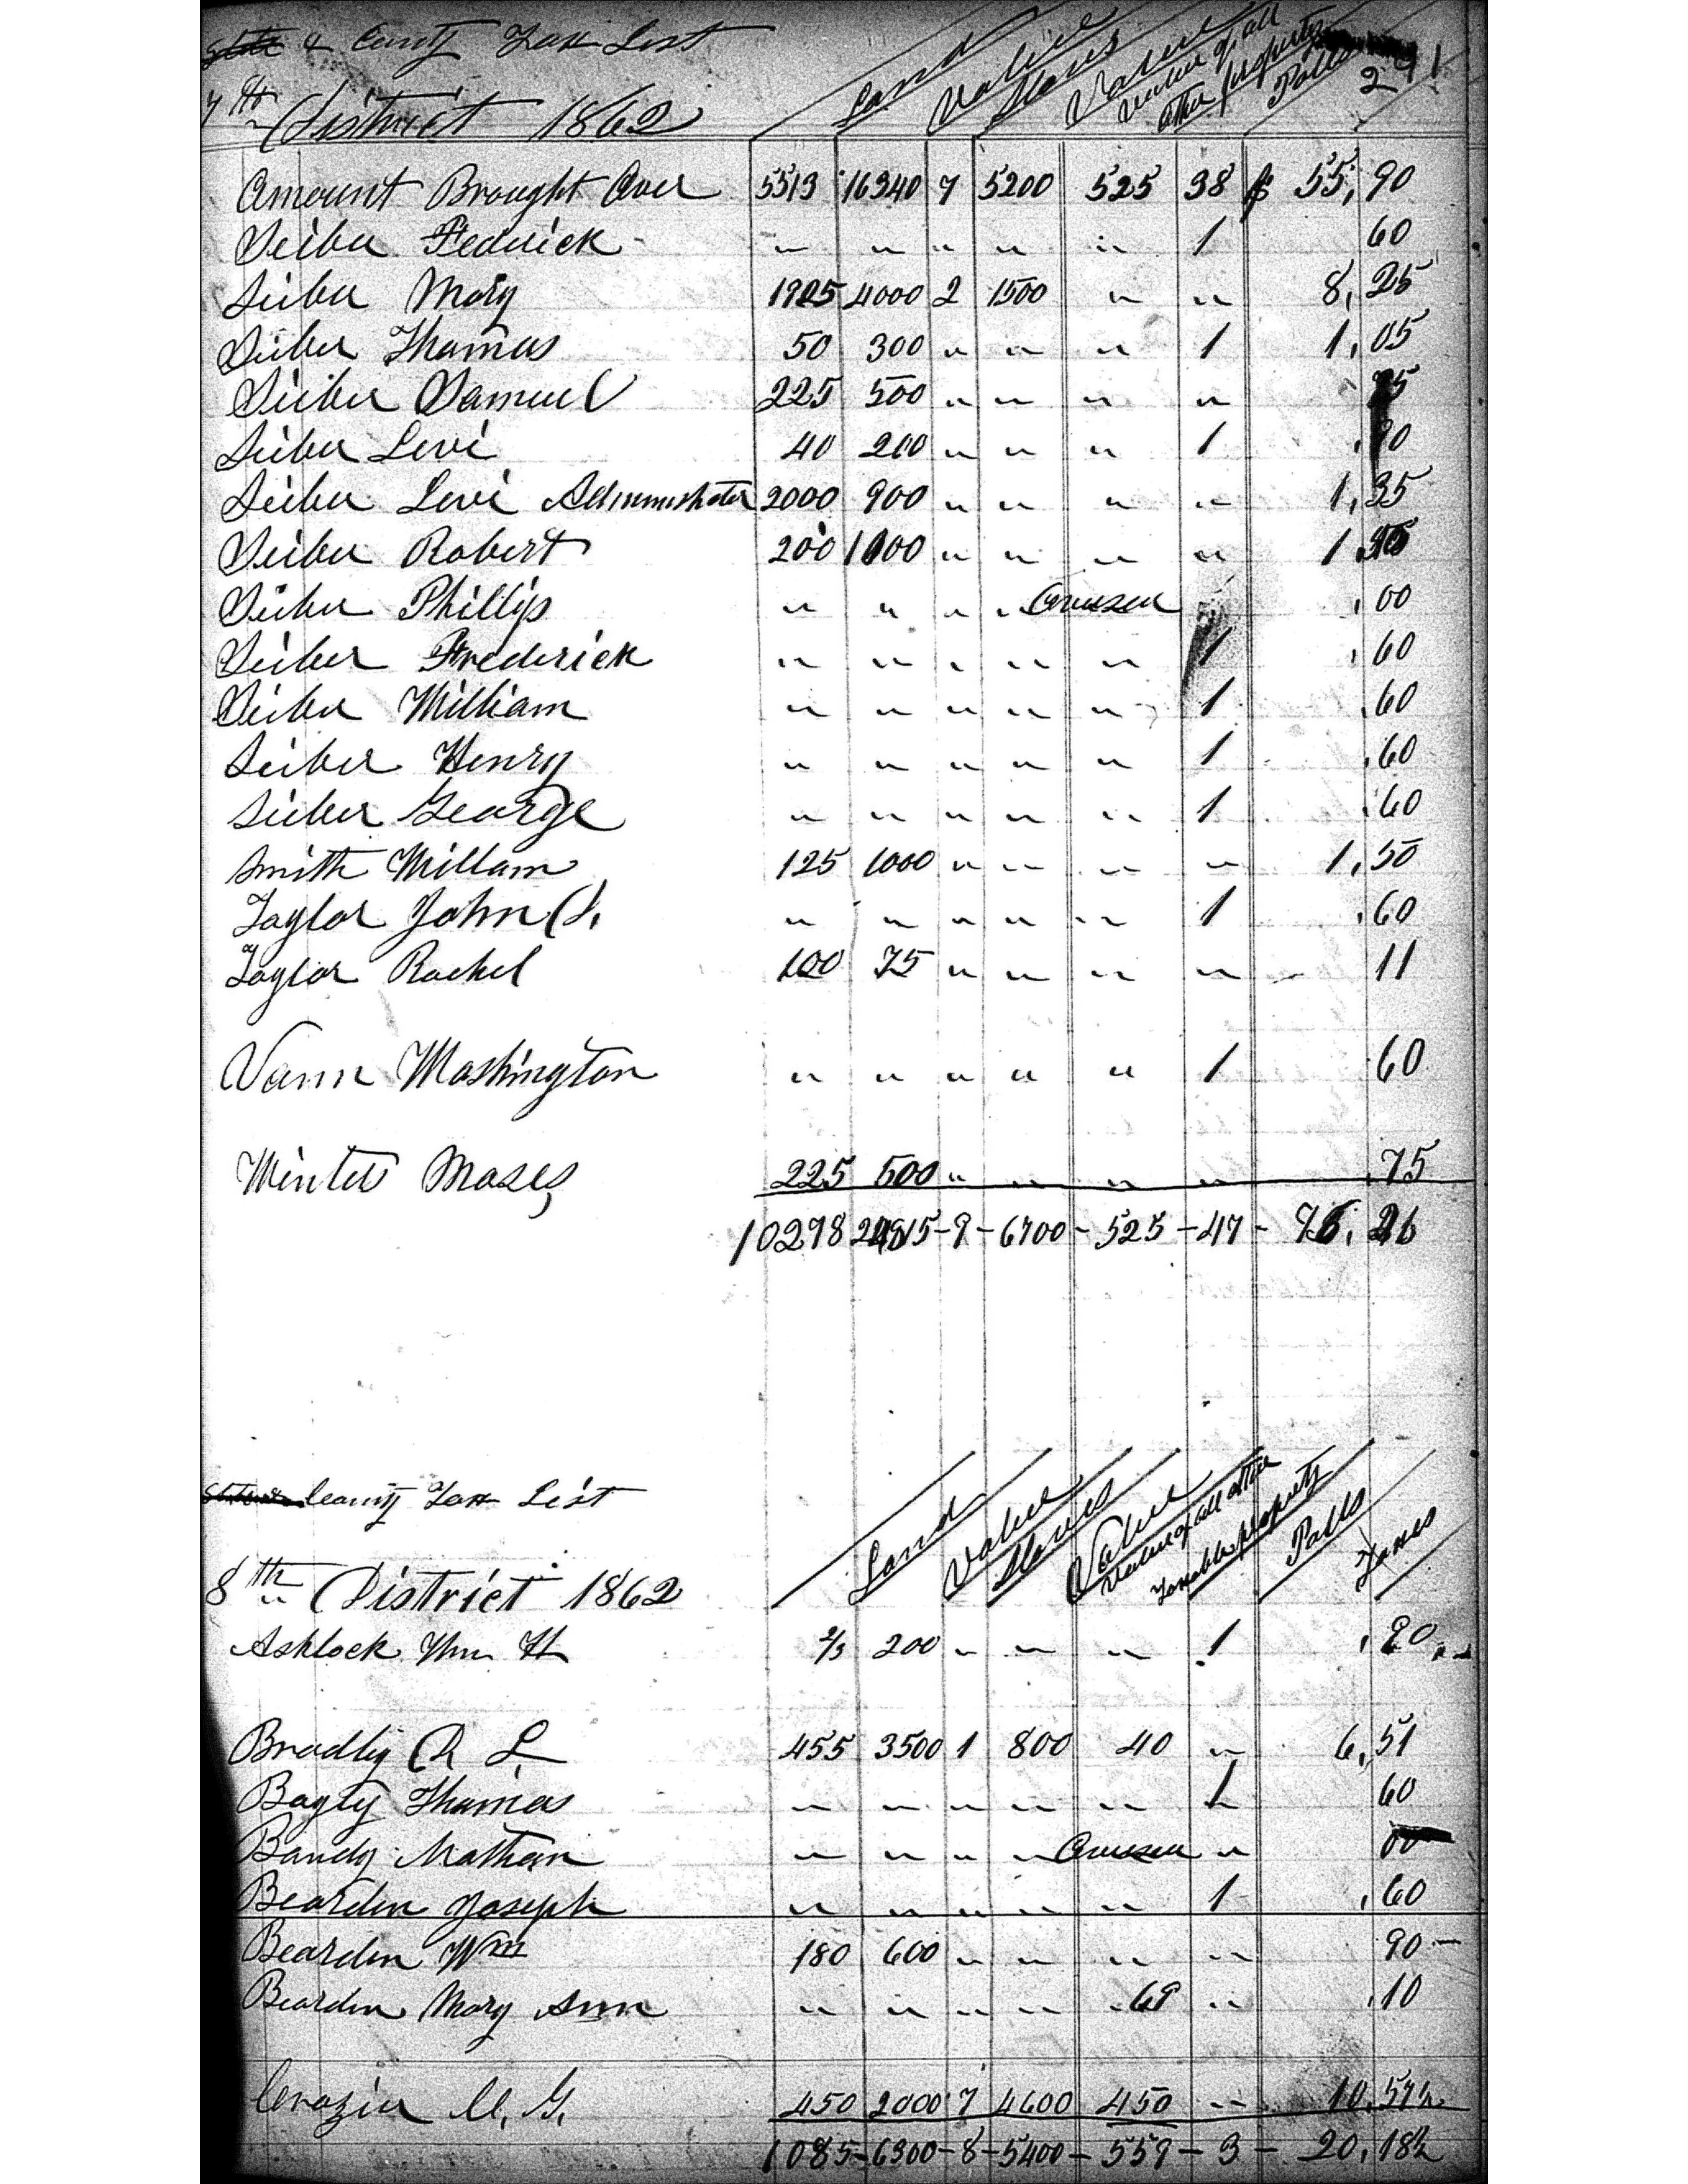 State & County Tax List
7th District 1862 Land Value Slaves Value Value of all other property Polls 291
Amount Brought Over 5513 16340 7 5200 525 38 $ 55,90
Seiber Federick " " " " " 1 60
Seiber Mary 1925 4000 2 1500 " " 8,25
Seiber Thomas 50 300 " " " 1 1,05
Seiber Samuel 225 500 " " " " 75
Seiber Levi 40 200 " " " 1 ,90
Seiber Levi Administrator 2000 900 " " " " 1,35
Seiber Robert 200 1000 " " " " 1
Seiber Phillip " " " " ,00
Seiber Frederick " " " " " 1 ,60
Seiber William " " " " " 1 ,60
Seiber Henry " " " " " 1 ,60
Seiber George " " " " " 1 ,60
Smith Willam 125 1000 " " " " 1,50
Taylor John S. " " " " " 1 ,60
Taylor Rachel 100 75 " " " " 11
Vann Washington " " " " " 1 60
Winters Moses 225 500 " " " " ,75
10298 -9-6700-525-47-
County Tax List
8th District 1862 Land Value Slaves Value Value of all other Taxable property Polls Taxes
Ashlock Wm H 2/3 200 " " " 1 ,90
Bradly R L. 455 3500 1 800 40 " 6,51
Bagly Thomas " " " " " 1 60
Bandy Nathan " " " " " 00
Bearden Joseph " " " " " 1 ,60
Bearden Wm 180 600 " " " " 90-
Bearden Mary Ann " " " " 69 " ,10
Crozier C. G. 450 2000 7 4600 450 " 10,57½
1085-6300-8-5400-559-3-20,18½